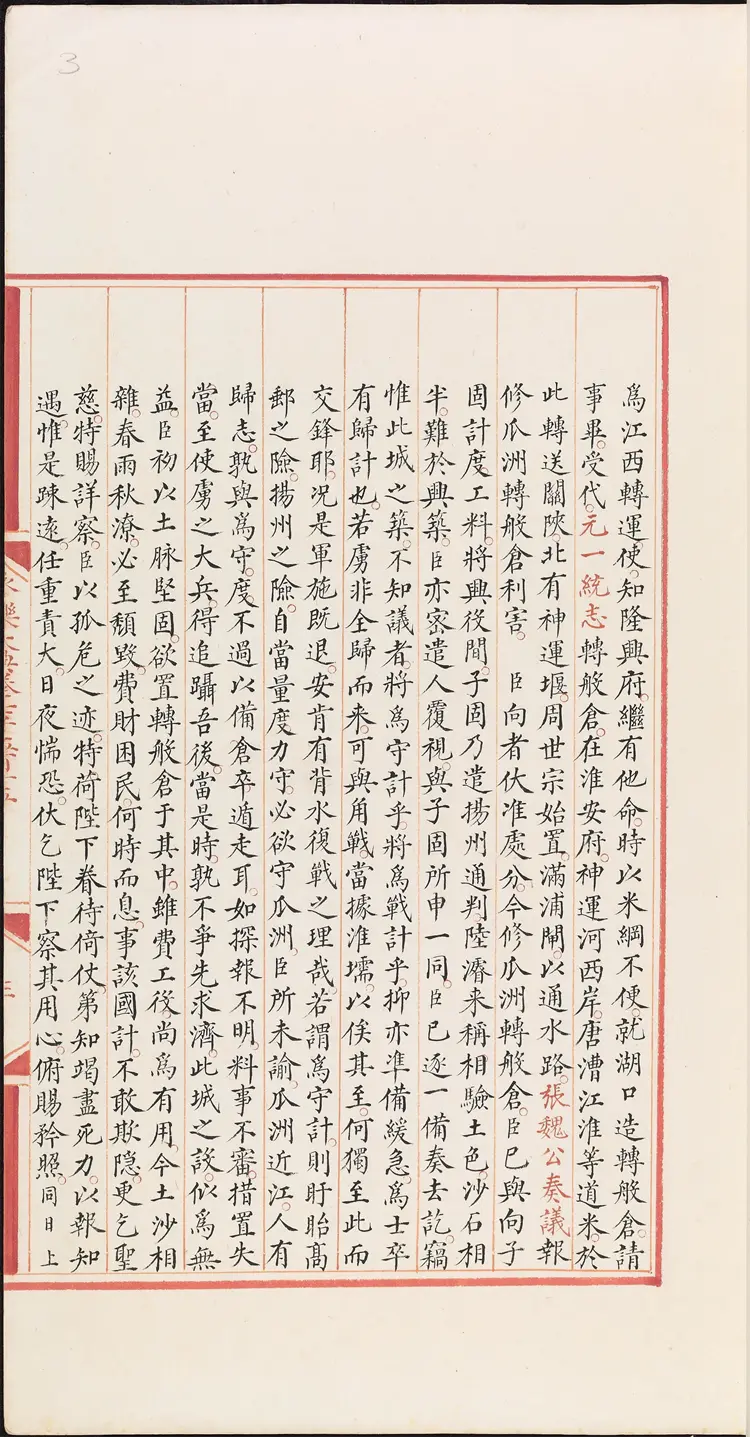 3
爲江西轉運使。知隆興府。繼有他命。時以米綱不便。就湖口造轉般倉。請
事畢。受代。元一統志轉般倉。在淮安府。神運河西岸。唐漕江淮等道米。於
此轉送關陝。北有神運堰。周世宗始置。滿浦閘。以通水路。張魏公奏議報
修瓜洲轉般倉利害。 臣向者伏准處分。今修瓜洲轉般倉。臣已與向子
固計度工料。將興役間。子固乃遣揚州通判陸濬来稱相驗土色。沙石相
半。難於興築。臣亦密遣人覆視。與子固所申一同。臣已逐一備奏去訖。竊
惟此城之築。不知議者。將爲守計乎。將爲戰計乎。抑亦準備緩急。爲士卒
有歸計也。若虜非全歸而来。可與角戰。當據淮壖。以俟其至。何獨至此而
交鋒耶。况是軍施既退。安肯有背水復戰之理哉。若謂爲守計。則盱眙高
郵之險。揚州之險。自當量度力守。必欲守瓜洲。臣所未諭。瓜洲近江。人有
歸志。孰與爲守。度不過以備倉卒遁走耳。如探報不明。料事不審。措置失
當。至使虜之大兵。得追躡吾後。當是時。孰不爭先求濟。此城之設。似爲無
益。臣初以土脉堅固。欲置轉般倉于其中。雖費工役。尚爲有用。今土沙相
雜。春雨秋潦。必至頽毀。費財困民。何時而息。事該國計。不敢欺隱。更乞聖
慈。特賜詳察。臣以孤危之迹。特荷陛下眷待倚仗。第知竭盡死力。以報知
遇。惟是踈遠。任重責大。日夜惴恐。伏乞陛下察其用心。俯賜矜照。同日上